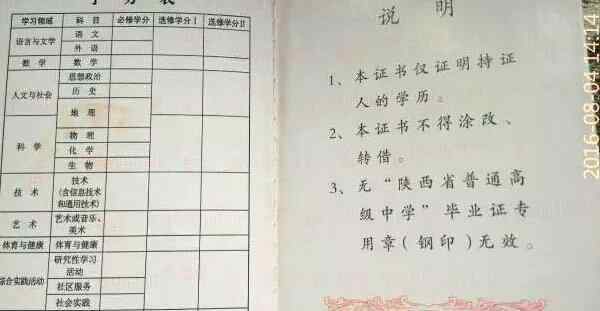 学习领域 科目 必修学分 选修学分I 选修学分II
语言与文学 语文
外语
数学 数学
人文与社会 思想政治
历史
地理
科学 物理
化学
生物
技术 技术
(含信息技术
和通用技术)
艺术 艺术或音乐、
美术
体育与健康 体育与健康
综合实践活动 研究性学习
活动
社区服务
社会实践
说明
1、本证书仅证明持证
人的学历。
2、本证书不得涂改、
转借。
3、无“陕西省普通高
级中学”毕业证专
用章(钢印)无效。
2016-08-04 14:14